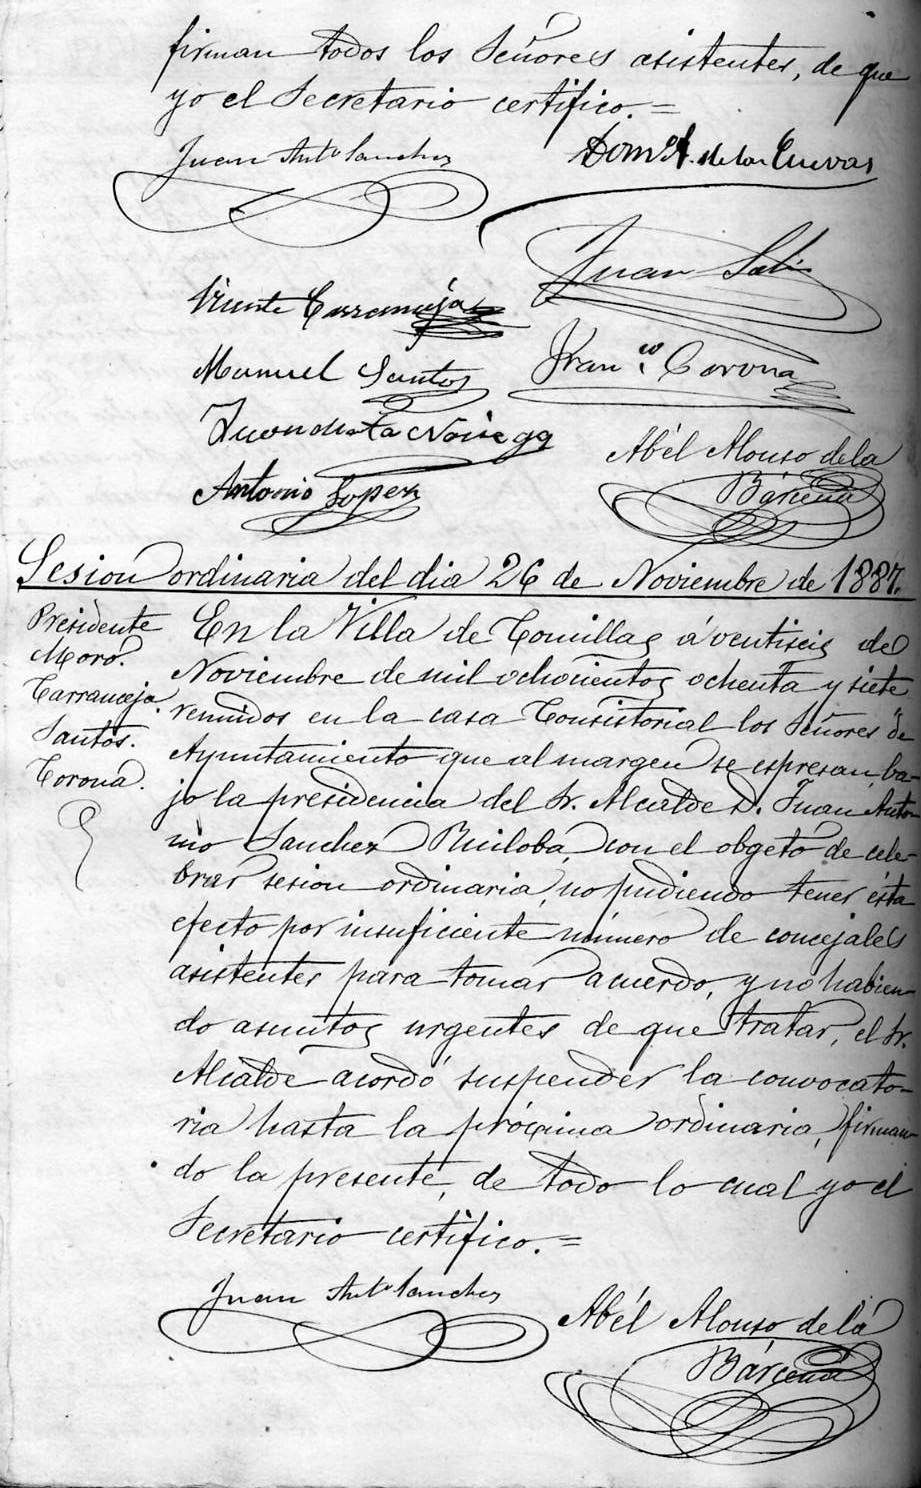 firman todos los Señores asistentes, de que
yo el Secretario certifico.=
Juan Antº Sanchez
Domº A. de las Cuevas
Juan
Vicente Carranceja
Manuel Santos
Franco Corona
Juan de la Noriega
Abél Alonso de la
Bárcena
Antonio Lopez
Sesion ordinaria del dia 26 de Noviembre de 1887.
Presidente
Moro.
Carranceja.
Santos.
Corona.
En la Villa de Comillas á ventiseis de
Noviembre de mil ochocientos ochenta y siete
reunidos en la casa Consistorial los Señores de
Ayuntamiento que al margen se espresan, ba-
jo la presidencia del Sr. Alcalde D. Juan Anto-
nio Sanchez Ruiloba, con el obgeto de cele-
brar sesion ordinaria, no pudiendo tener ésta
efecto por insuficiente número de concejales
asistentes para tomar acuerdo, y no habien-
do asuntos urgentes de que tratar, el Sr.
Alcalde acordó suspender la convocato-
ria hasta la próxima ordinaria, firman-
do la presente, de todo lo cual yo el
Secretario certifico.=
Juan Antº Sanchez
Abél Alonso de la
Bárcena